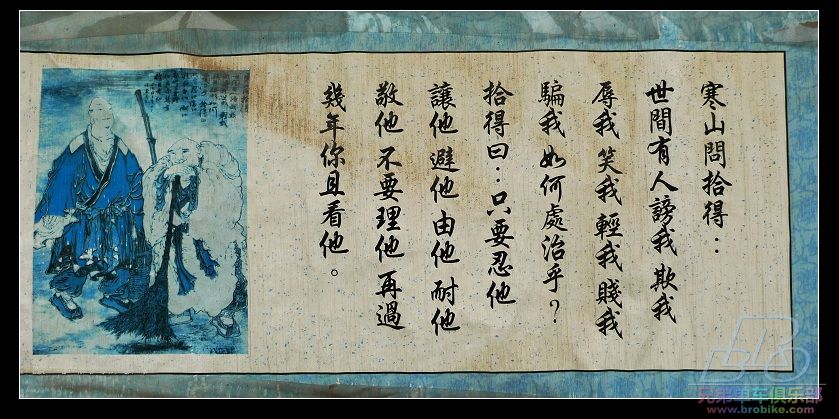 寒山問拾得：
世間有人謗我 欺我
辱我 笑我 輕我 賤我
騙我 如何處治乎？
拾得曰：只要忍他
讓他 避他 由他 耐他
敬他 不要理他 再過
幾年你且看他。
兄弟单车俱乐部
www.brobike.com